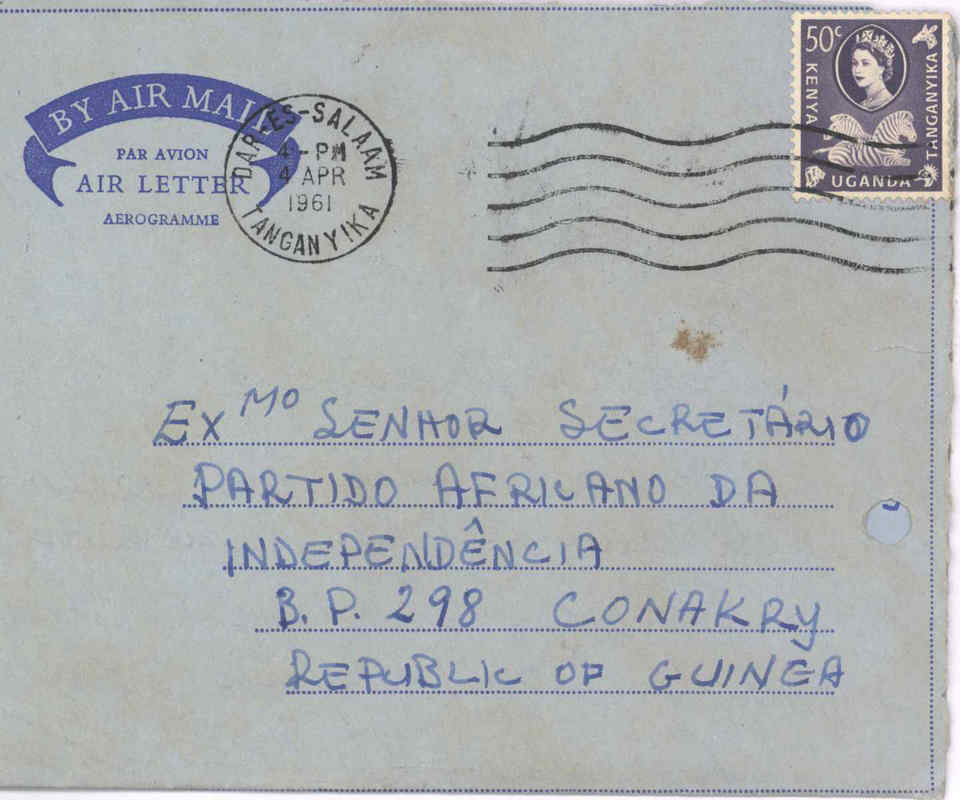 BY AIR MAIL
PAR AVION
AIR LETTER
AEROGRAMME
DAR-ES-SALAAM
4-PM
4 APR
1961
TANGANYIKA
50c
KENYA
UGANDA
TANGANYIKA
EX MO SENHOR SECRETÁRIO
PARTIDO AFRICANO DA
INDEPENDÊNCIA
B.P. 298 CONAKRY
REPUBLIC OF GUINEA